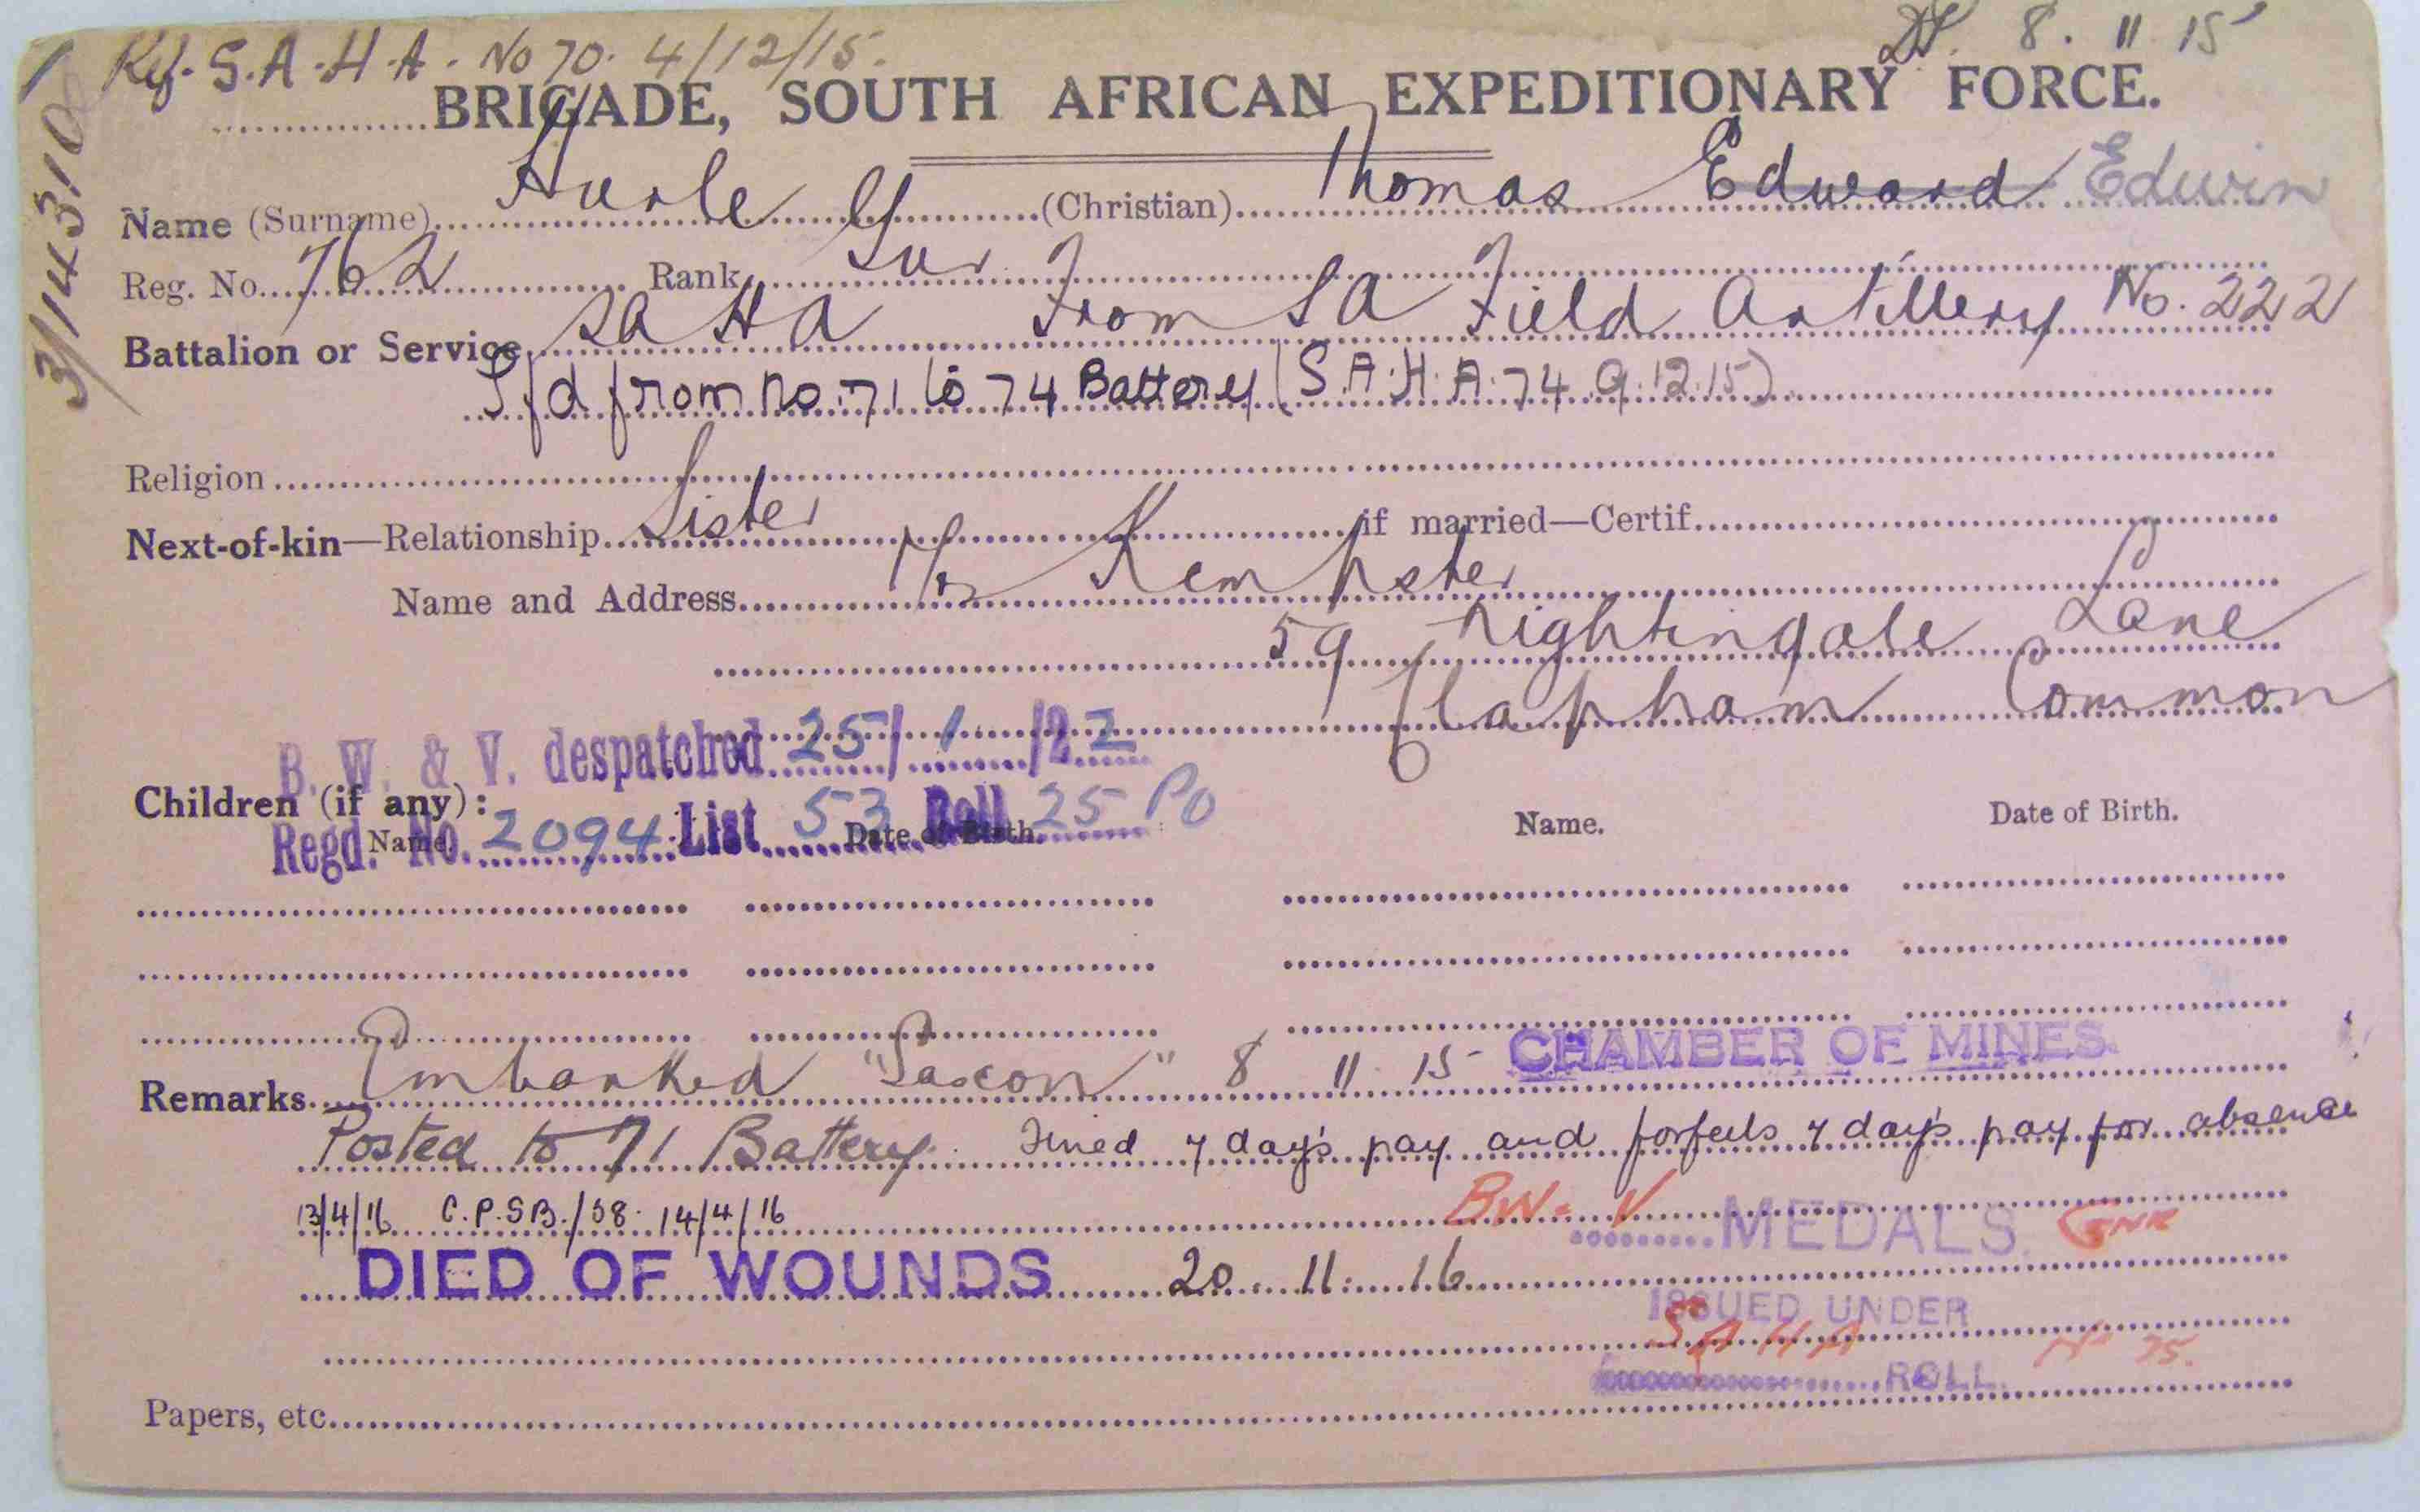 Ref. S.A.H.A. No 70. 4/12/15. 8. 11 15
3/14310
BRIGADE, SOUTH AFRICAN EXPEDITIONARY FORCE.
Name (Surname) Hurle (Christian) Thomas Edward Edwin
Reg. No. 762 Rank Gnr
Battalion or Service SAHA From SA Field Artillery No. 222
T/d from no. 71 to 74 Battery (S.A.H.A. 74 9.12.15)
Religion
Next-of-kin—Relationship Sister if married—Certif.
Name and Address Kempster
59 Nightingale Lane
Clapham Common
B. W. & V. despatched 25/1/22
Children (if any):
Regd. No. 2094 List 53 Roll 25 PO
Name. Date of Birth. Name. Date of Birth.
Remarks Embarked "Saxon" 8 11 15 CHAMBER OF MINES.
Posted to 71 Battery. Fined 7 day's pay and forfeits 7 day's pay for absence
13/4/16 C.P.S.B./58. 14/4/16
BW. V MEDALS. GNR
DIED OF WOUNDS 20. 11. 16
ISSUED UNDER
S A H A No 75.
ROLL.
Papers, etc.